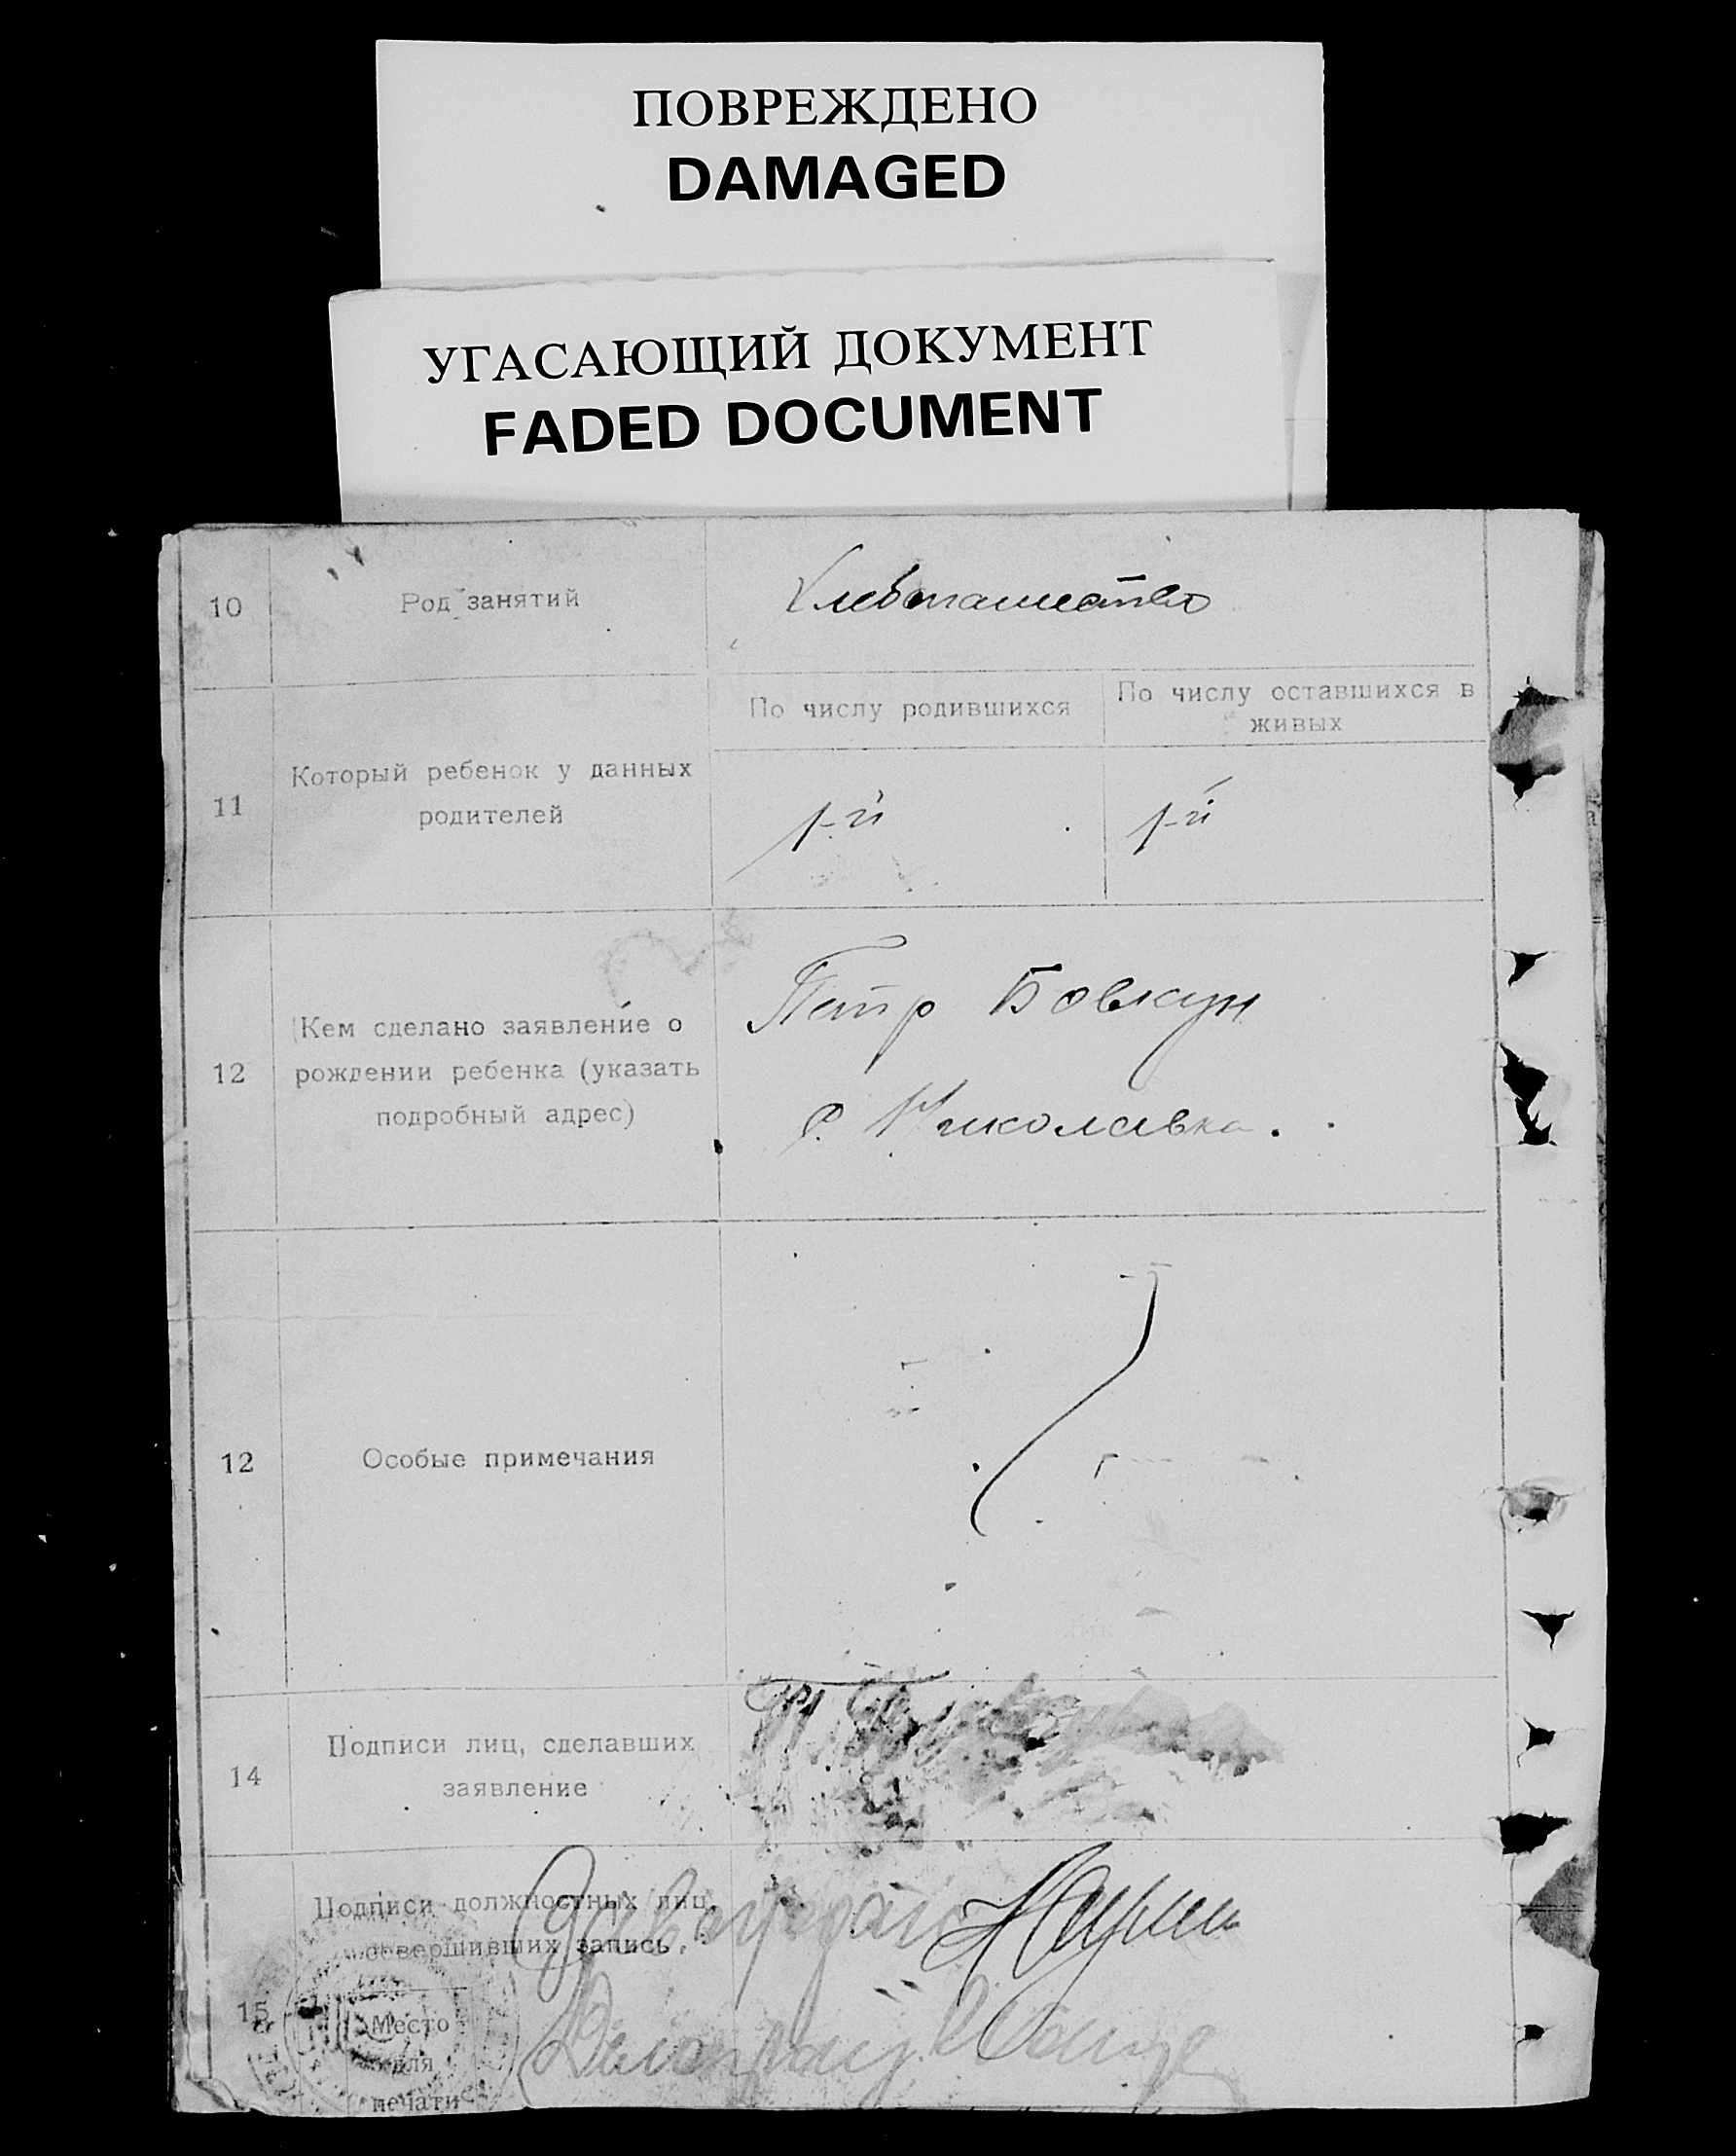 ПОВРЕЖДЕНО
DAMAGED
УГАСАЮЩИЙ ДОКУМЕНТ
FADED DOCUMENT
10 Род занятий Хлебопашество
По числу родившихся По числу оставшихся в
живых
11 Который ребенок у данных
родителей
1-й 1-й
12 Кем сделано заявление о
рождении ребенка (указать
подробный адрес)
Петр Бовкун
с. Николавка.
12 Особые примечания
14 Подписи лиц, сделавших
заявление
П. Бовкун
15 Подписи должностных лиц,
совершивших запись.
Место
для
печати